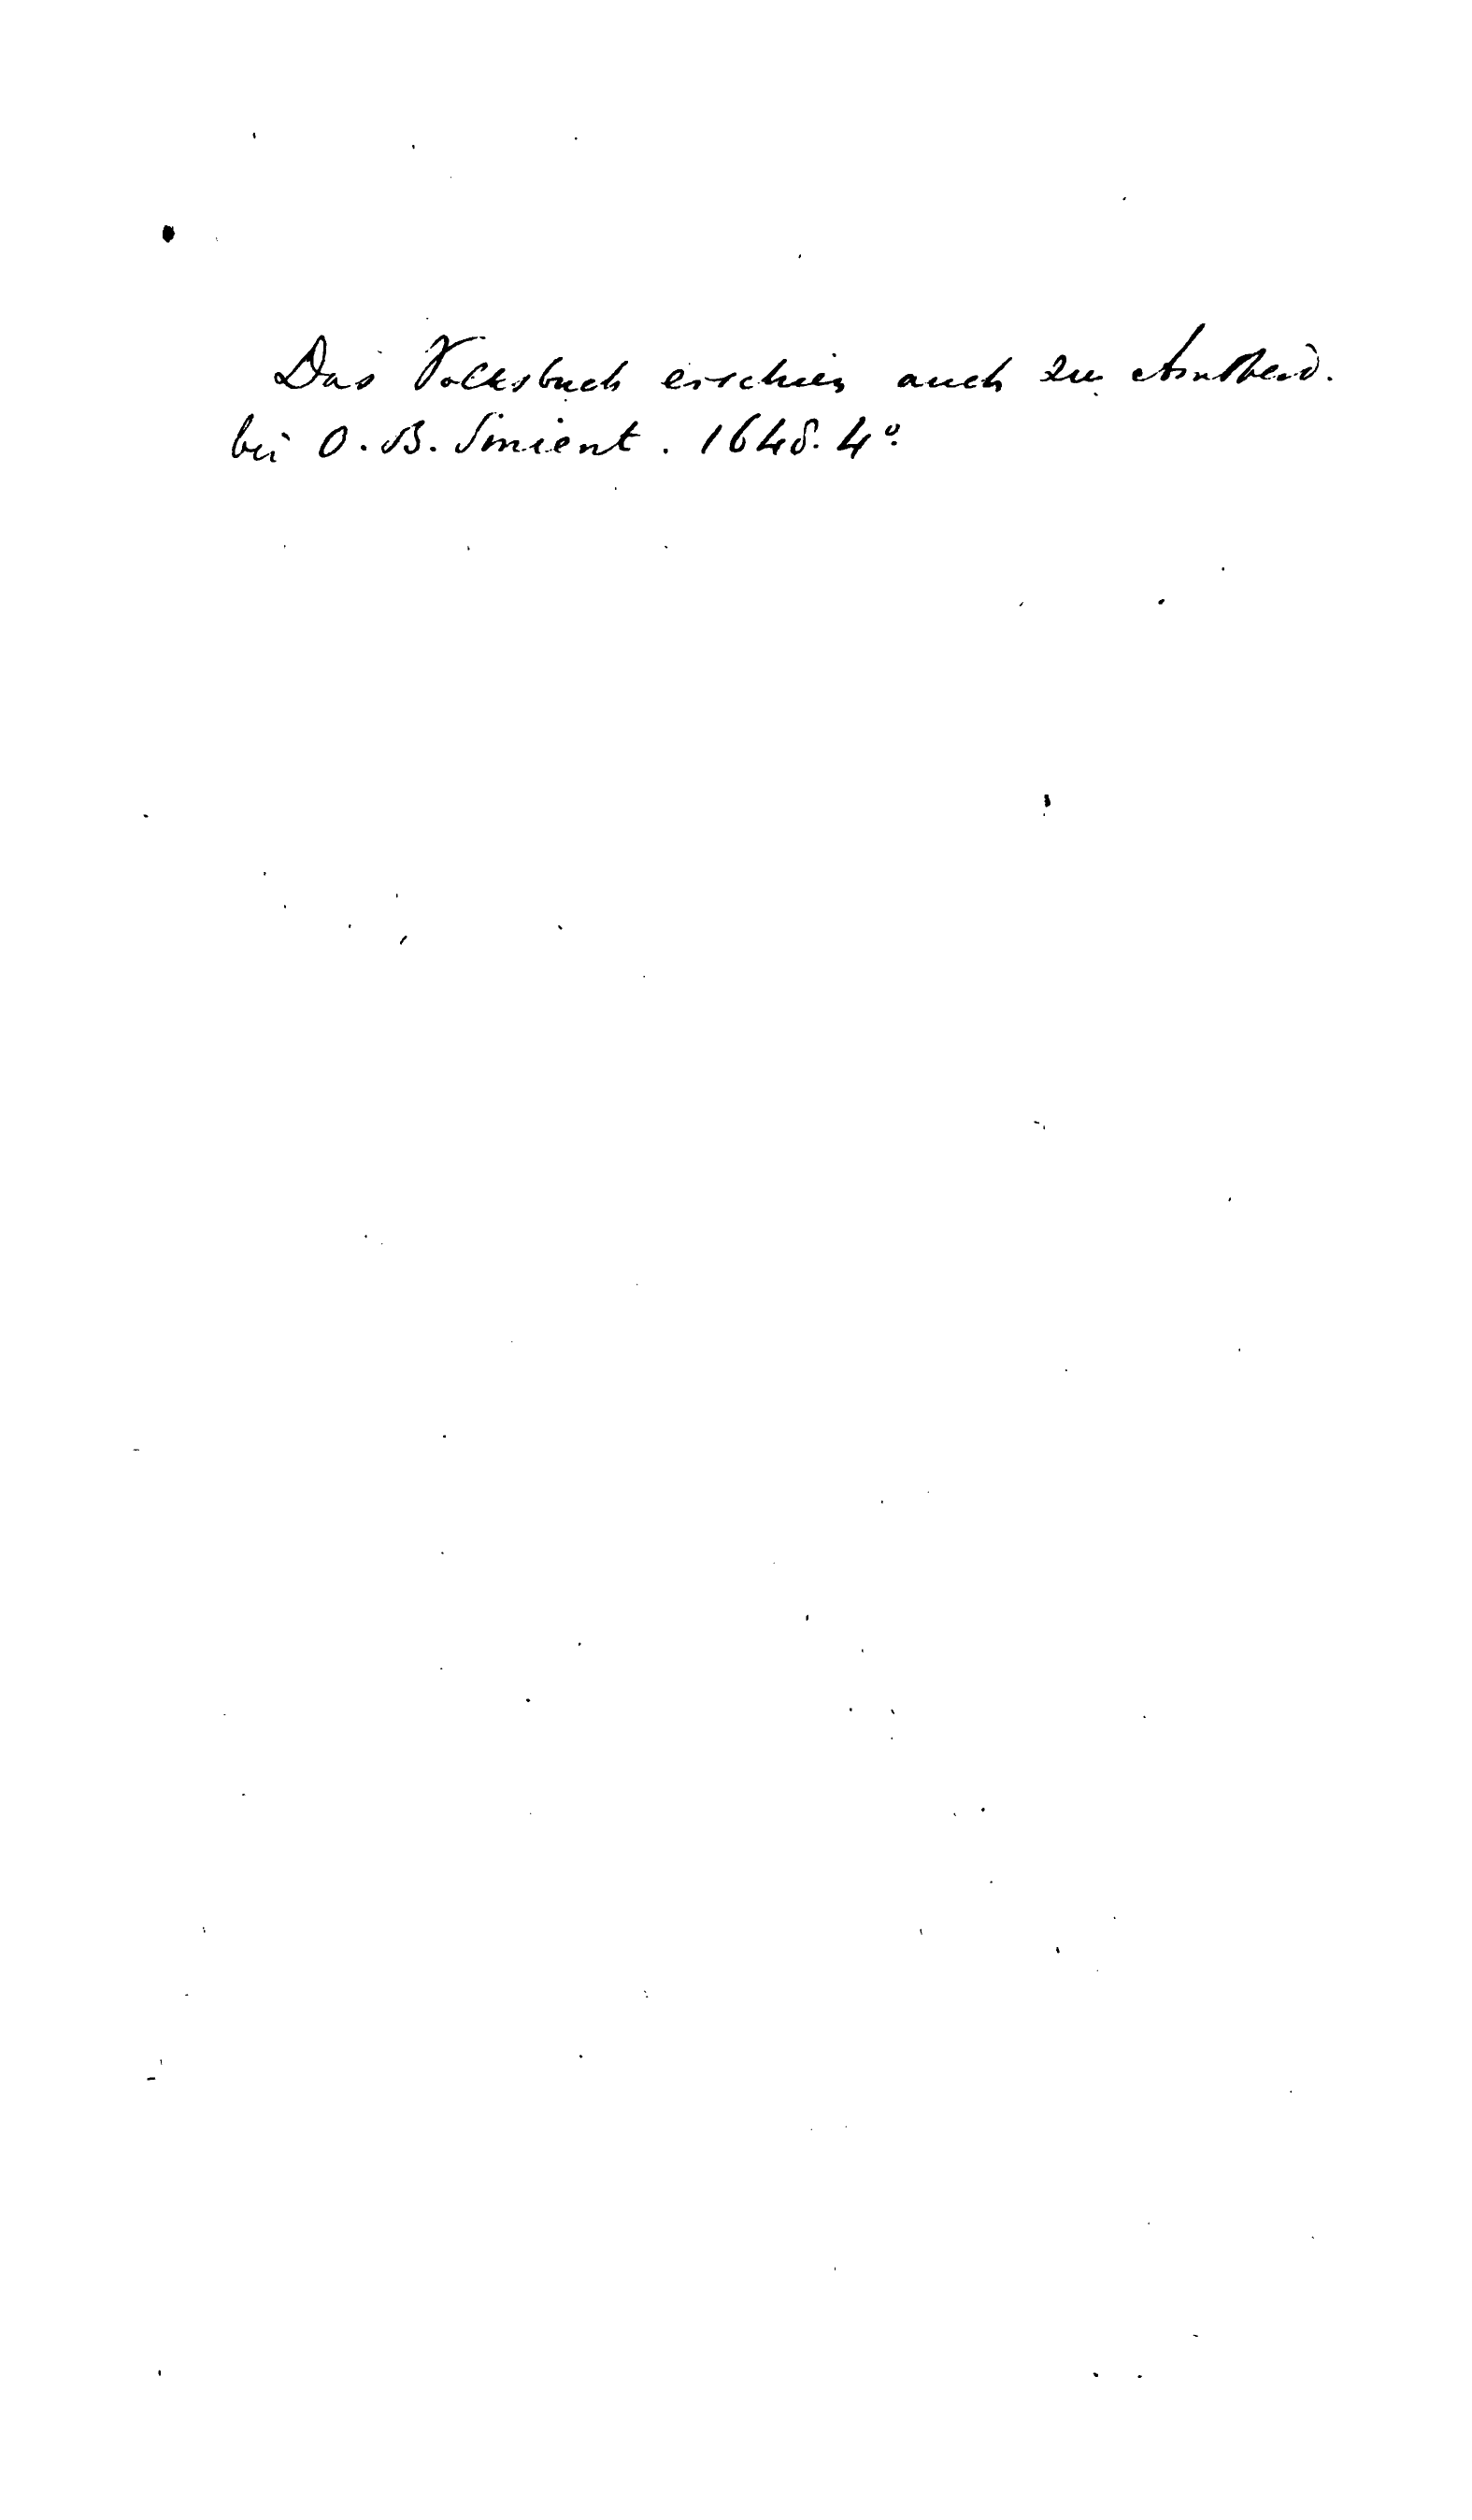 Das Volksbuch erschien auch zu Amsterd.
bei O. B. Smient. 1648. 4º.